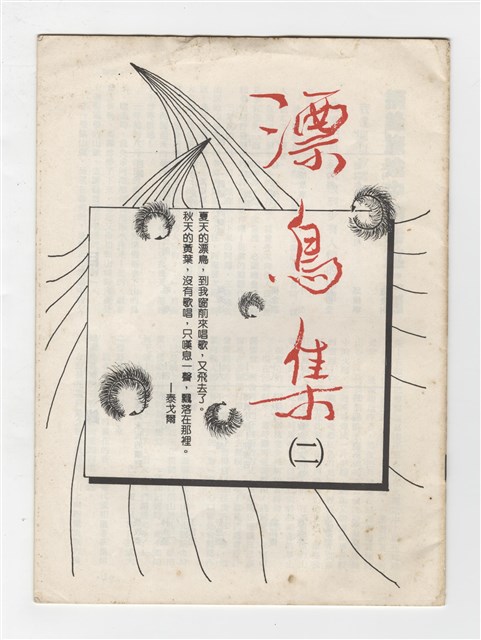 漂鳥集
(二)
夏天的漂鳥，到我窗前來唱歌，又飛去了。
秋天的黃葉，沒有歌唱，只嘆息一聲，飄落在那裡。
—泰戈爾